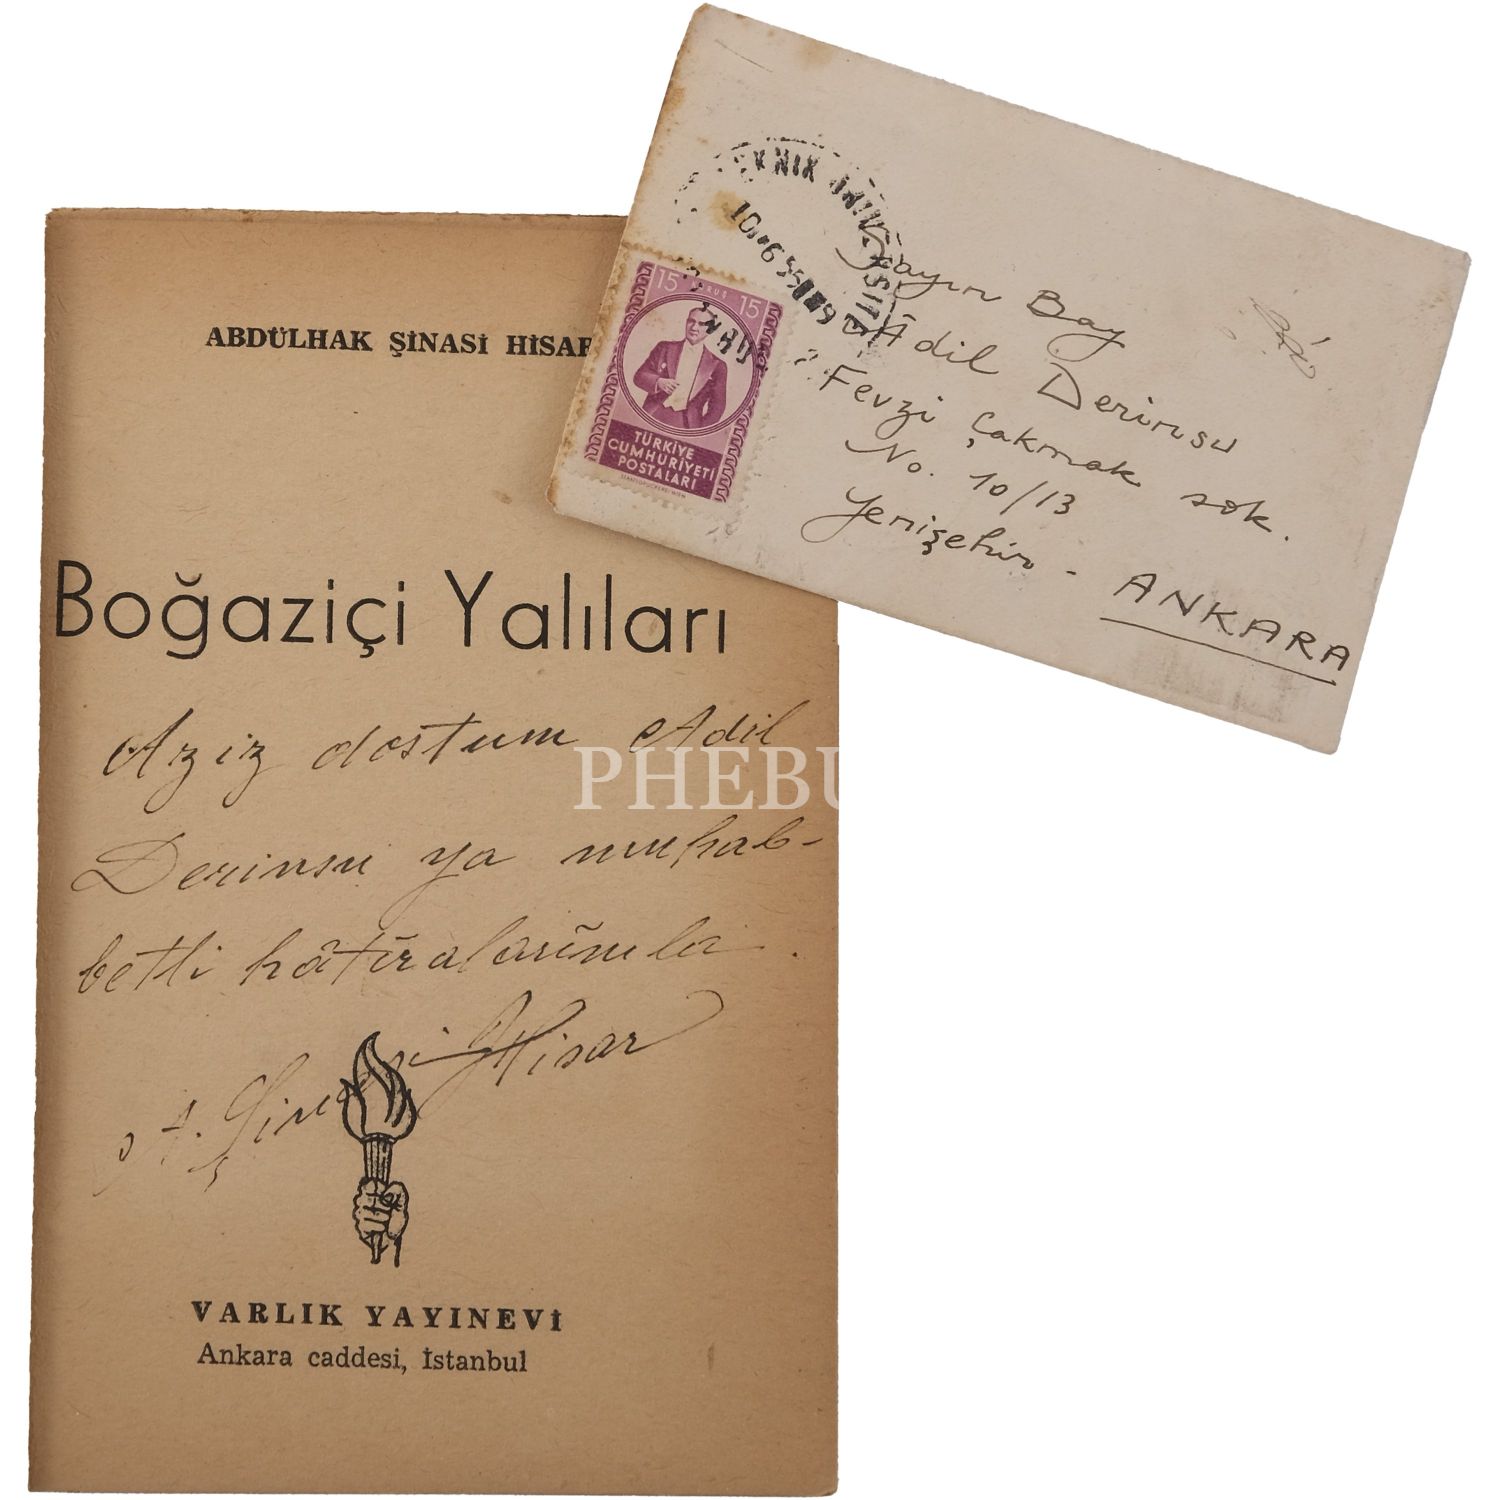 ABDÜLHAK ŞİNASİ HİSAR
Boğaziçi Yalıları
Aziz dostum Adil
Derinsu ya muhab-
betli hâtıralarımla.
A. Şinasi Hisar
VARLIK YAYINEVİ
Ankara caddesi, İstanbul
PHEBU
15 15
TÜRKİYE
CUMHURİYETİ
POSTALARI
Sayın Bay
Âdil Derinsu
Fevzi Çakmak sok.
No. 10/13
Yenişehir - ANKARA